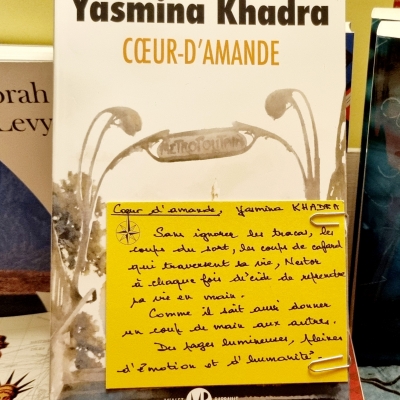 Yasmina Khadra
CŒUR-D'AMANDE
orah
Levy
METROPOLITAIN
Cœur d'amande, Yasmina KHADRA
Sans ignorer les tracas, les
coups du sort, les coups de cafard
qui traversent sa vie, Nestor
à chaque fois décide de reprendre
sa vie en main.
Comme il sait aussi donner
un coup de main aux autres.
Des pages lumineuses, pleines
d'émotion et d'humanité.